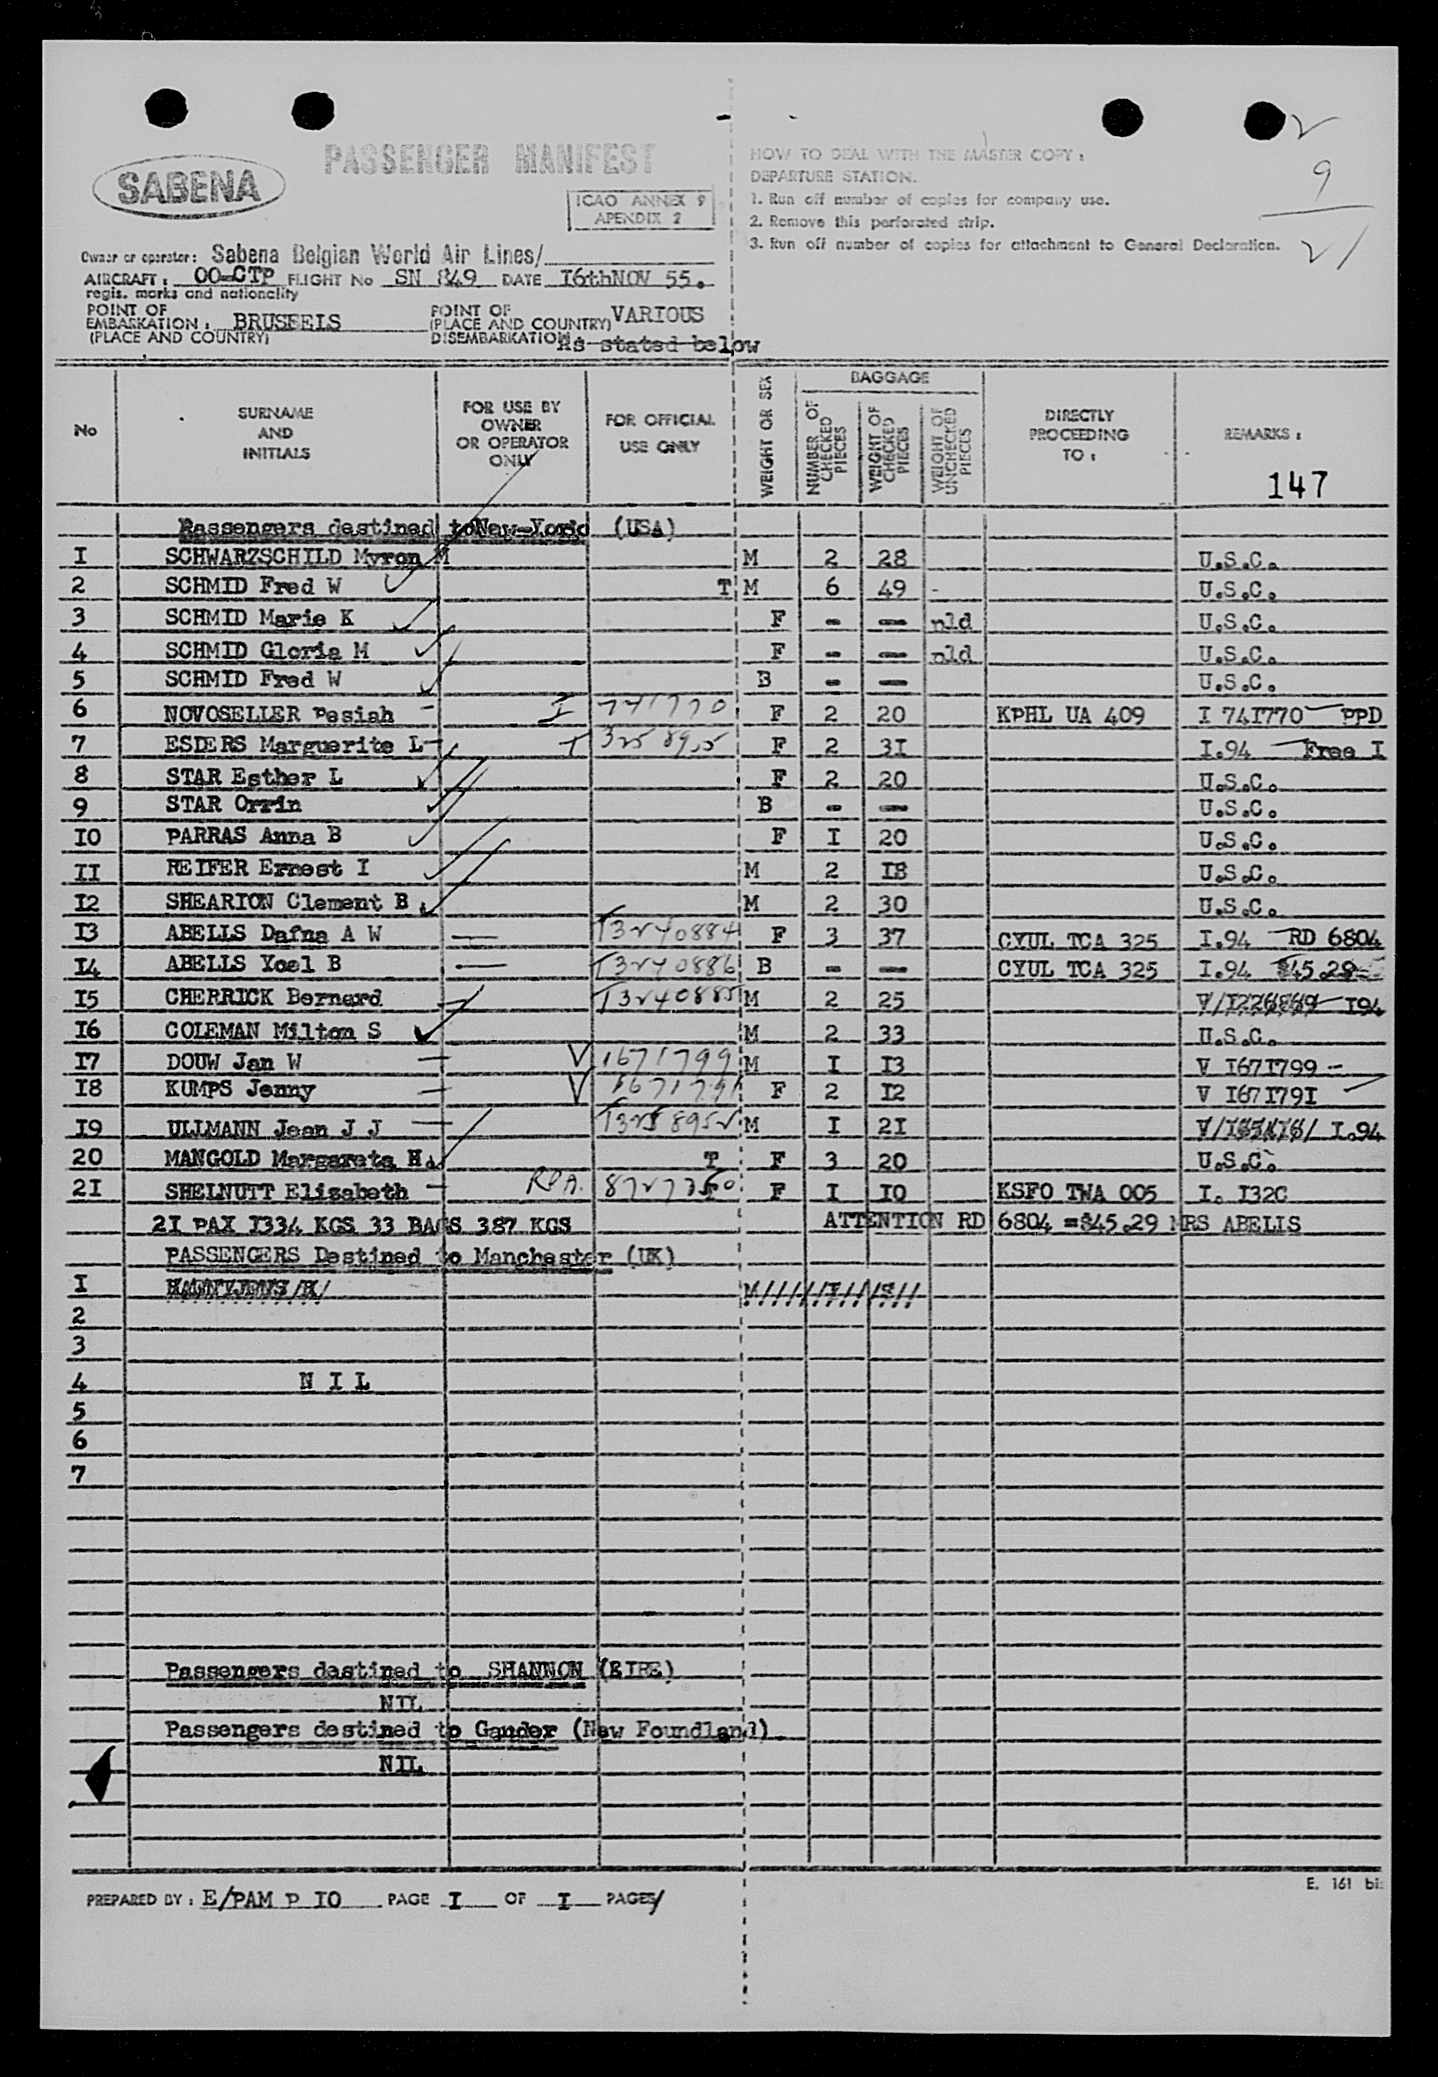 PASSENGER MANIFEST
SABENA
ICAO ANNEX 9
APENDIX 2
HOW TO DEAL WITH THE MASTER COPY :
DEPARTURE STATION.
1. Run off number of copies for company use.
2. Remove this perforated strip.
3. Run off number of copies for attachment to General Declaration.
9
Owner or operator: Sabena Belgian World Air Lines/
AIRCRAFT : OO-CTP FLIGHT No SN 849 DATE I6thNOV 55.
regis. marks and nationality
POINT OF EMBARKATION : BRUSEELS (PLACE AND COUNTRY)
POINT OF (PLACE AND COUNTRY) DISEMBARKATION VARIOUS
As stated below
No
SURNAME AND INITIALS
FOR USE BY OWNER OR OPERATOR ONLY
FOR OFFICIAL USE ONLY
WEIGHT OR SEX
BAGGAGE
NUMBER OF CHECKED PIECES
WEIGHT OF CHECKED PIECES
WEIGHT OF UNCHECKED PIECES
DIRECTLY PROCEEDING TO :
REMARKS :
147
Passengers destined to New-York (USA)
I SCHWARZSCHILD Myron M M 2 28 U.S.C.
2 SCHMID Fred W T M 6 49 - U.S.C.
3 SCHMID Marie K F - - nld U.S.C.
4 SCHMID Gloria M F - - nld U.S.C.
5 SCHMID Fred W B - - U.S.C.
6 NOVOSELLER Pesiah - I 741770 F 2 20 KPHL UA 409 I 74I770 - PPD
7 ESDERS Marguerite L - T 3258955 F 2 3I I.94 - Free I
8 STAR Esther L F 2 20 U.S.C.
9 STAR Orrin B - - U.S.C.
IO PARRAS Anna B F I 20 U.S.C.
II REIFER Ernest I M 2 I8 U.S.C.
I2 SHEARION Clement B. M 2 30 U.S.C.
I3 ABELLS Dafna A W - T3240884 F 3 37 CYUL TCA 325 I.94 - RD 6804
I4 ABELLS Yoel B - T3240886 B - - CYUL TCA 325 I.94 $45.29
I5 CHERRICK Bernard - T3240885 M 2 25 I94
I6 COLEMAN Milton S M 2 33 U.S.C.
I7 DOUW Jan W - V 1671799 M I I3 V I67I799 -
I8 KUMPS Jenny - V 1671791 F 2 I2 V I67I79I
I9 ULLMANN Jean J J - M I 2I I.94
20 MANGOLD Margareta H. T F 3 20 U.S.C.
2I SHELNUTT Elizabeth - RPA. 8727350 F I IO KSFO TWA 005 I. I32C
2I PAX I334 KGS 33 BAGS 387 KGS ATTENTION RD 6804 =$45.29 MRS ABELLS
PASSENGERS Destined to Manchester (UK)
I
2
3
4 N I L
5
6
7
Passengers destined to SHANNON (EIRE)
NIL
Passengers destined to Gander (New Foundland).
NIL
E. 161 bis
PREPARED BY : E/PAM P IO PAGE I OF I PAGES/